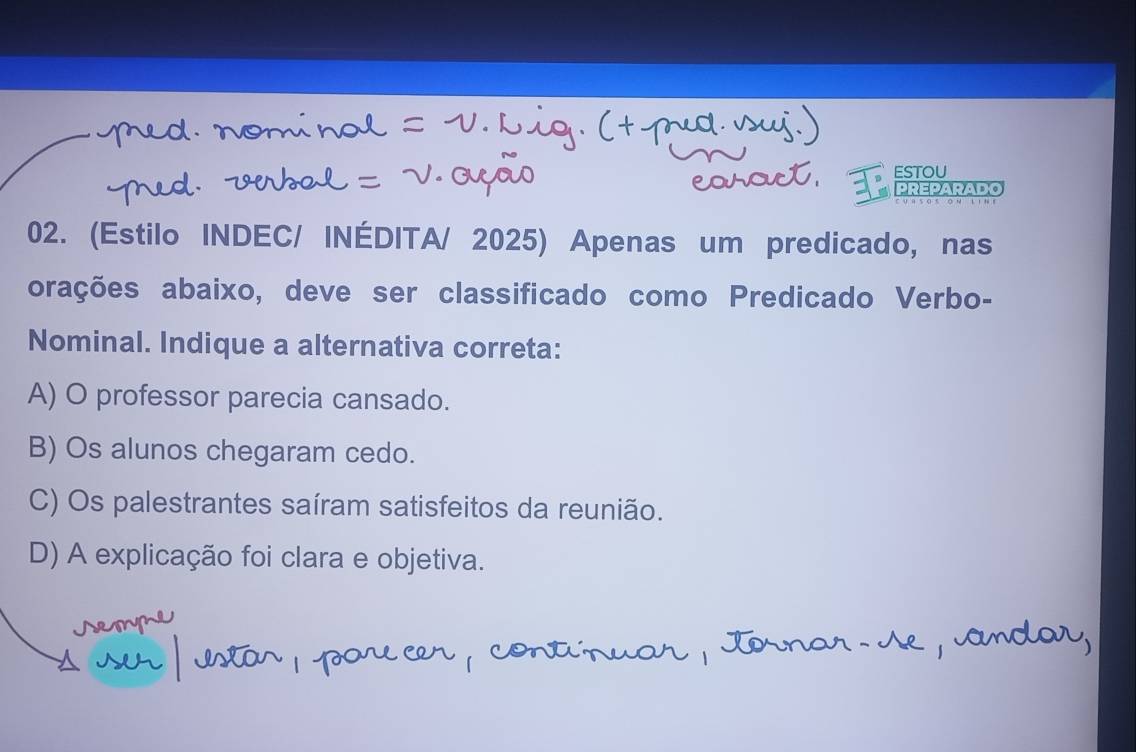 pred. nominal = v. Lig. (+ pred. suj.)
pred. verbal = v. ação
caract.
ESTOU
PREPARADO
CURSOS ON LINE
02. (Estilo INDEC/ INÉDITA/ 2025) Apenas um predicado, nas
orações abaixo, deve ser classificado como Predicado Verbo-
Nominal. Indique a alternativa correta:
A) O professor parecia cansado.
B) Os alunos chegaram cedo.
C) Os palestrantes saíram satisfeitos da reunião.
D) A explicação foi clara e objetiva.
sempre
ser | estar, parecer, continuar, tornar-se, andar,